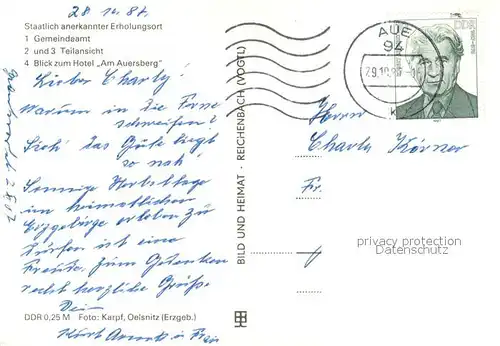 28.10.87.
Staatlich anerkannter Erholungsort
1 Gemeindeamt
2 und 3 Teilansicht
4 Blick zum Hotel „Am Auersberg"
Lieber Charly!
Warum in die Ferne
schweifen?
Sieh' das Gute liegt
so nah!
Sonnige Herbsttage
im heimatlichen
Erzgebirge erleben zu
dürfen ist eine
Freude. Zum Gedenken
recht herzliche Grüße
Dein
Kurt
DDR 0,25 M Foto: Karpf, Oelsnitz (Erzgeb.)
BILD UND HEIMAT · REICHENBACH (VOGTL)
AUE
94
DDR
Herrn
Charly Körner
Fr.
privacy protection
Datenschutz